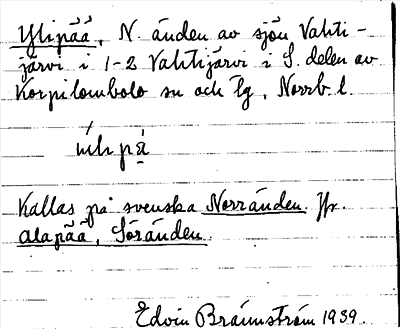 Ylipää, N. änden av sjön Vahti-
järvi i 1-2 Vahtijärvi i S. delen av
Korpilombolo sn och tg, Norrb. l.
Kallas på svenska Norränden. Jfr
alapää, Söränden.
Edvin Brännström 1939.